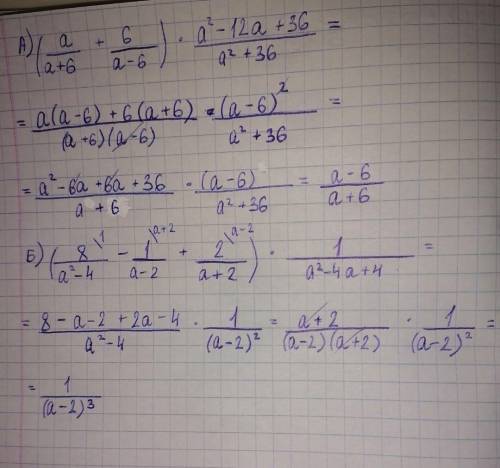 А) (a/(a+6) + 6/(a-6)) · (a² - 12a + 36)/(a² + 36) =
= (a(a-6) + 6(a+6))/((a+6)(a-6)) · (a-6)²/(a² + 36) =
= (a² - 6a + 6a + 36)/(a + 6) · (a-6)/(a² + 36) = (a-6)/(a+6)
Б) (8\¹/(a²-4) - 1\ᵃ⁺²/(a-2) + 2\ᵃ⁻²/(a+2)) · 1/(a²-4a+4) =
= (8 - a - 2 + 2a - 4)/(a² - 4) · 1/(a-2)² = (a+2)/((a-2)(a+2)) · 1/(a-2)² =
= 1/(a-2)³